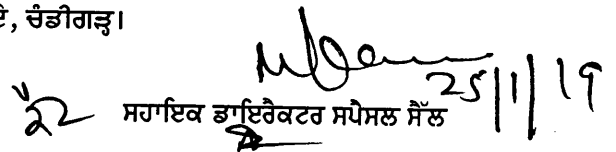 ਚੰਡੀਗੜ੍ਹ।
25/1/19
ਸਹਾਇਕ ਡਾਇਰੈਕਟਰ ਸਪੈਸਲ ਸੈੱਲ